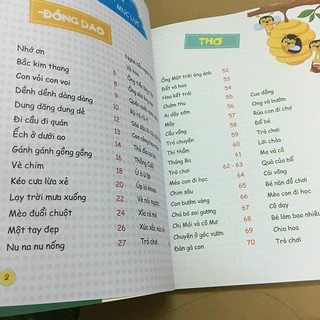 MỤC LỤC
-ĐỒNG DAO
Nhớ ơn
Bắc kim thang
Con vỏi con voi
Dềnh dềnh dàng dàng
Dung dăng dung dẻ
Đi cầu đi quán
Ếch ở dưới ao
Gánh gánh gồng gồng
Vè chim
Kéo cưa lừa xẻ
Lạy trời mưa xuống
Mèo đuổi chuột
Một tay đẹp
Nu na nu nống
5
6
8
9
10
12
13
14
16
18
20
22
24
26
27
Ú à ù ập
Xỉa cá mè
Trò chơi
2
THƠ
Ông Mặt trời óng ánh 52
Đất và hoa 53
Hoa kết trái 54
Chổm thu 55
Ai dậy sớm 56
Mây 57
Cầu vồng 58
Trò chuyện 59
Thì thầm 60
Tháng Ba 61
Trò chơi 62 - 63
Mèo con đi học 64
Chim sâu 65
Con bướm vàng 66
Chú bò soi gương 67
Chị Mái và cô Mơ 68
Chuyện ở góc vườn 69
Đàn gà con 70
Cua đồng
Ong và bướm
Rùa con đi chợ
Để bé
Trò chơi
Lời chào
Mẹ và cô
Quà của bố
Cái võng
Bé nặn đồ chơi
Mèo con đi học
Cô dạy
Bé làm bao nhiêu
Chia hoa
Trò chơi